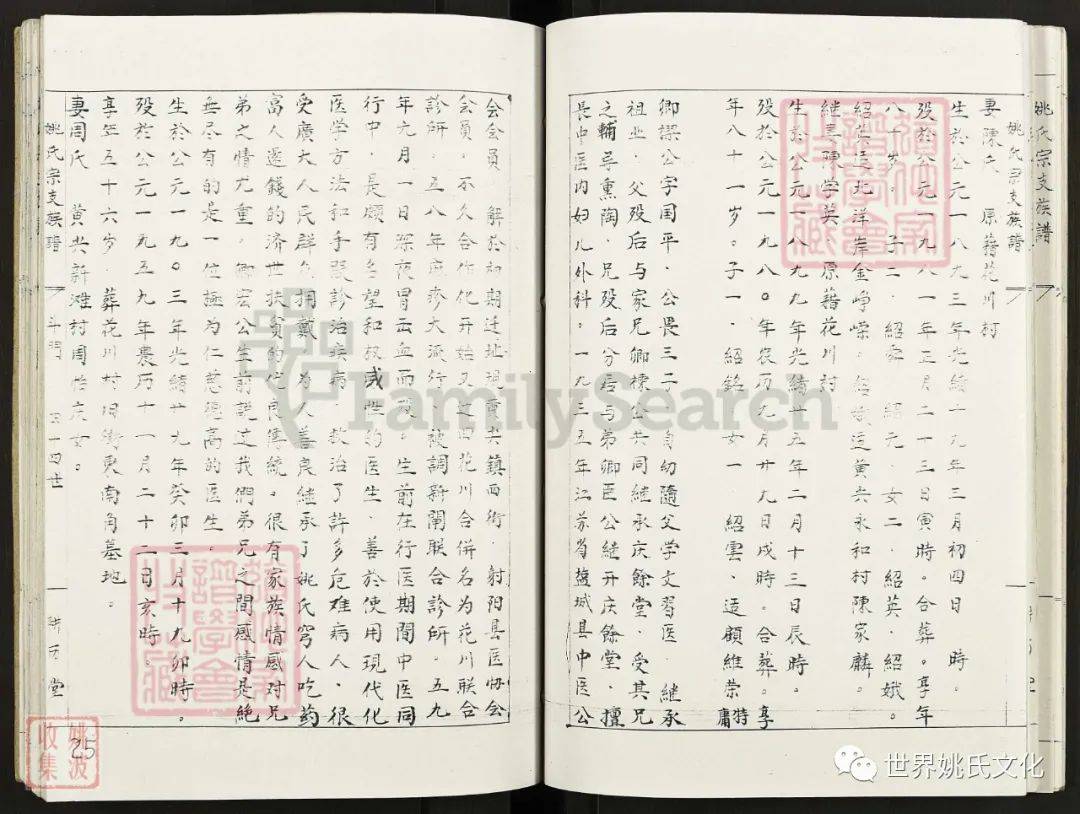 姚氏宗支族譜
姚氏宗支族譜
妻陳氏 原藉花川村
生於公元一八九三年光緒十九年三月初四日 時。
殁於公元一九八一年正月二十三日寅時。合葬。享年
八十 岁。子二 紹 紹元。女二 紹英.紹娥。
北洋岸金崢嶸。紹娥适黄尖永和村陳家麟。
継妻陳学英 原藉花川村
生於公元一八九九年光緒廿五年二月十三日辰時。
殁於公元一九八〇年农历九月廿九日戍時。合葬。享
年八十一岁。子一 紹銘 女一 紹雲、适顧维荣
特庸
卿謨公字国平.公畏三子 自幼隨父学文習医 継承
祖业.父殁后与家兄卿標公共同継承庆餘堂.受其兄
之輔导熏陶.兄殁后分居与弟卿臣公継开庆餘堂.擅
長中医内妇儿外科。一九三五年江苏省盐城县中医公
会会員 解放初期迁址現黄尖鎮西街.射阳县医协会
会員.不久合作化开始又迁回花川合併名为花川联合
診所.五八年麻疹大流行.被調新闸联合診所.五九
年九月一日深夜胃出血而殁。生前在行医期間中医同
行中.是頗有名望和权威性的医生.善於使用現代化
医学方法和手段診治疾病.救治了許多危难病人.很
受廣大人民群众拥戴.为人善良継承了姚氏穷人吃药
富人还錢的济世扶贫的优良傳統。很有家族情感对兄
弟之情尤重。卿宏公生前説过我們弟兄之間感情是絶
無尽有的是一位極为仁慈德高的医生。
生於公元一九〇三年光緒廿九年癸卯三月十九卯時。
殁於公元一九五九年農历十一月二十二日亥時。
享年五十六岁.葬花川村旧街東南角墓地。
妻周氏 黄尖新滩村周怡庆女。
姚氏宗支族譜
斗門
三一四世
堂
25
姚波
收集
FamilySearch
世界姚氏文化